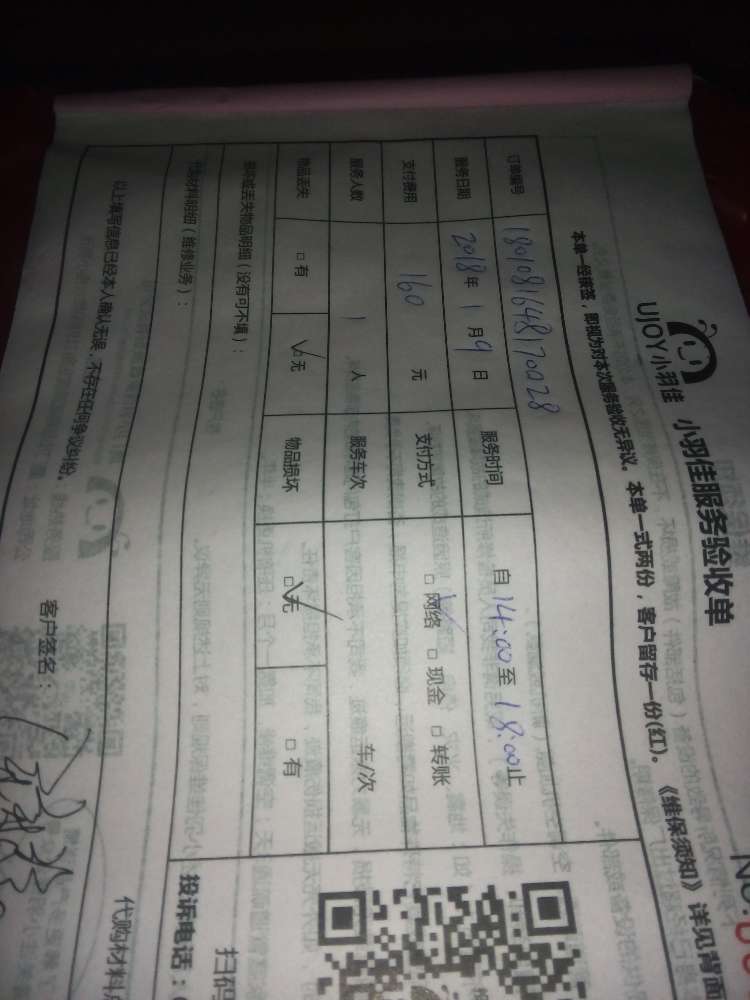 UJOY小羽佳 小羽佳服务验收单
本单一经签签，即视为对本次服务验收无异议。本单一式两份，客户留存一份(红)。《维保须知》详见背面
订单编号 1801081648170028 服务时间 自14:00至18:00止
服务日期 2018年1月9日 支付方式 □网络 □现金 □转账
支付费用 160元 服务车次 车/次
服务人数 1人 物品损坏 □无 □有
物品丢失 □有 □无
损坏或丢失物品明细（没有可不填）：
代购材料明细（维修业务）：
以上填写信息已经本人确认无误，不存在任何争议纠纷。
客户签名：
扫码
投诉电话：
代购材料